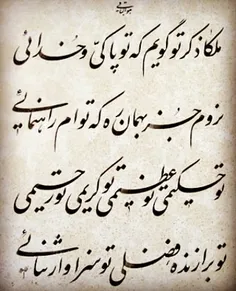 هوالعلی
ملکا ذکر تو گویم که تو پاکی و خدائی
نروم جز بهمان ره که توام راهنمائی
تو حکیمی تو عظیمی تو کریمی تو رحیمی
تو برازنده فضلی تو سزاوار ثنائی